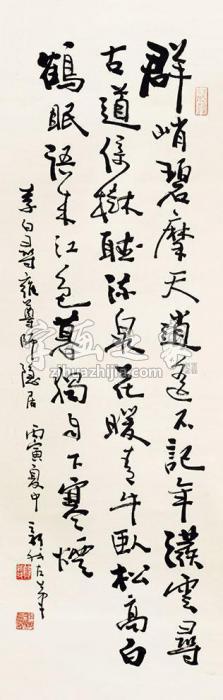 群峭碧摩天逍遥不記年撥雲尋
古道倚樹聽流泉花暖青牛臥松高白
鶴眠語來江色暮獨自下寒煙
李白尋雍尊師隱居 丙寅夏中 新我左筆
字画之家
www.zihuazhijia.com